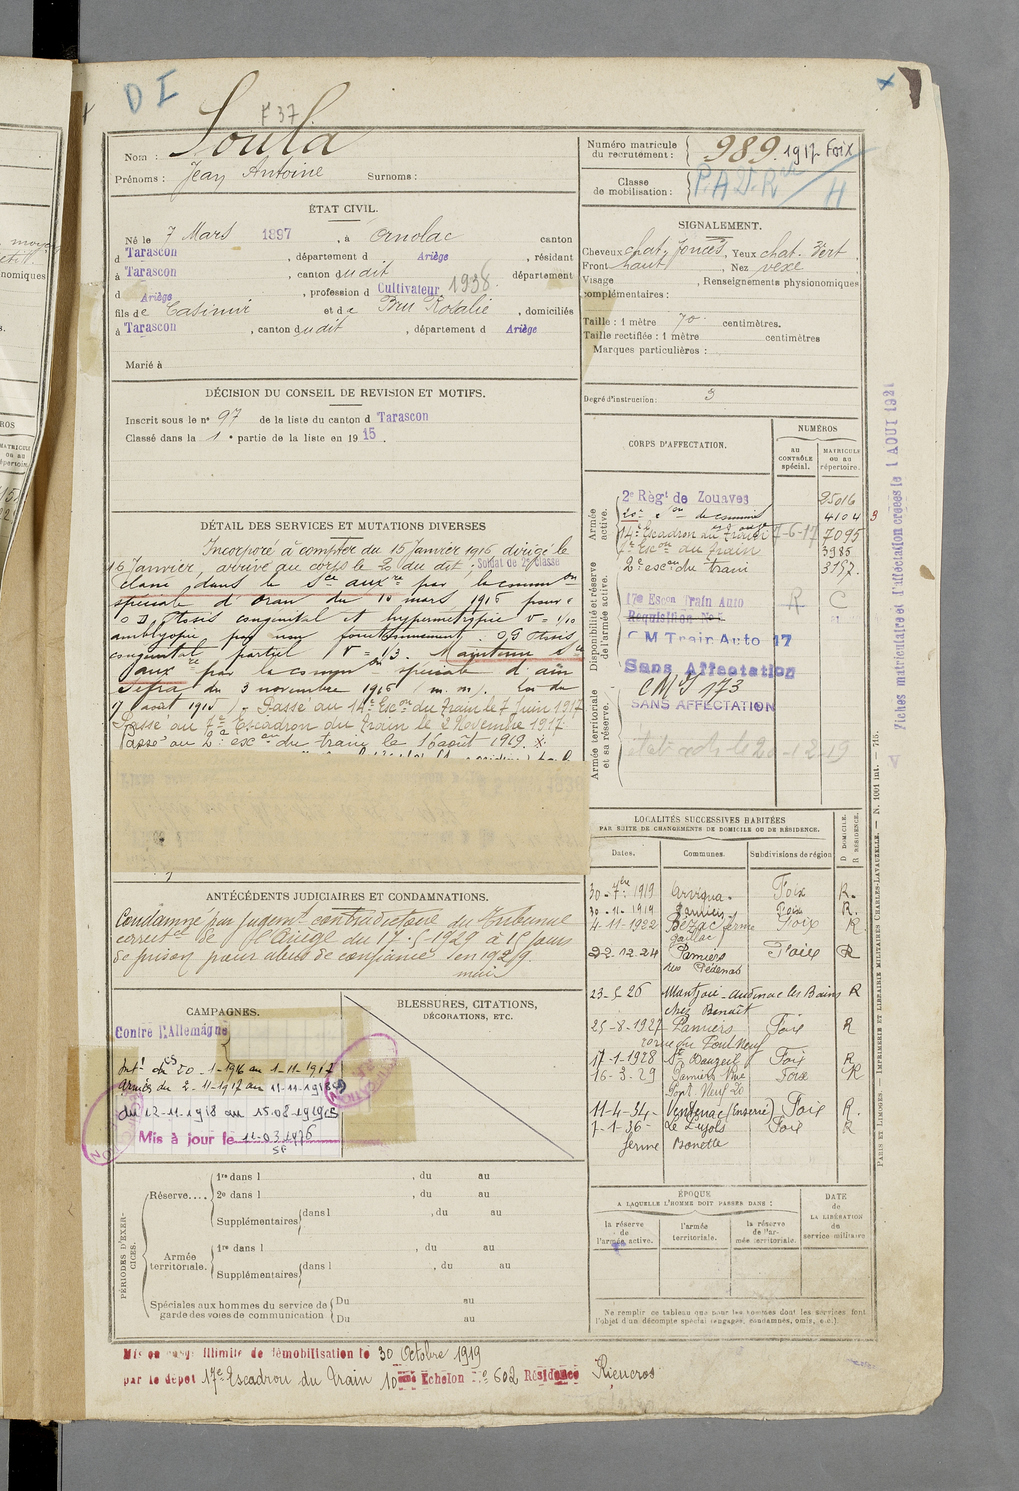 D I
F 37
Nom : Soula
Prénoms : Jean Antoine Surnoms :
Numéro matricule du recrutement : 989. 1917 Foix
Classe de mobilisation :
ÉTAT CIVIL.
Né le 7 Mars 1897, à Ornolac canton
d Tarascon, département d Ariège, résidant
à Tarascon, canton dudit département
d Ariège, profession d Cultivateur 1938
fils de Casimir et de Bru Rosalie, domiciliés
à Tarascon, canton dudit, département d Ariège
Marié à
SIGNALEMENT.
Cheveux chat. foncés, Yeux chat. vert,
Front haut, Nez vexe
Visage , Renseignements physionomiques
complémentaires :
Taille : 1 mètre 70 centimètres.
Taille rectifiée : 1 mètre centimètres
Marques particulières :
Degré d'instruction : 3
DÉCISION DU CONSEIL DE REVISION ET MOTIFS.
Inscrit sous le n° 97 de la liste du canton d Tarascon
Classé dans la 1e partie de la liste en 1915.
DÉTAIL DES SERVICES ET MUTATIONS DIVERSES
Incorporé à compter du 15 Janvier 1916 dirigé le
16 Janvier arrivé au corps le 20 du dit. Soldat de 2e classe
Classé dans le Sce auxre par la common
spéciale d'Oran du 10 mars 1916 pour
O D, Ptosis congénital et hypermétropie V = 1/10
amblyopie par non fonctionnement. O G Ptosis
congénital partiel V = 1/3. Maintenu Sce
auxre par la common spéciale d'Aïn
Sefra du 3 novembre 1916 (m. m). Loi du
17 août 1915. Passé au 14e Escon du Train le 7 Juin 1917
Passé au 7e Escadron du train le 2 Novembre 1917.
Passé au 2e escon du train le 16 août 1919.
CORPS D'AFFECTATION.
NUMÉROS
AU CONTRÔLE spécial.
MATRICULE ou au répertoire.
Armée active.
2e Régt de Zouaves 25016
4104
14e Escadron du Train 7-6-17 7095
7e Escon du Train 3985
2e escon du train 3157.
Disponibilité et réserve de l'armée active.
17e Escon Train Auto R C
Réquisition No
C M Train Auto 17
Sans Affectation
Armée territoriale et sa réserve.
CMI 173
SANS AFFECTATION
20-12-19
Fiches matriculaire et d'affectation créées le 1 AOUT 1921
ANTÉCÉDENTS JUDICIAIRES ET CONDAMNATIONS.
Condamné par jugemt contradictoire du Tribunal
correctel de l'Ariège du 17-5-1929 à 15 jours
de prison pour abus de confiance en 1929.
LOCALITÉS SUCCESSIVES HABITÉES
PAR SUITE DE CHANGEMENTS DE DOMICILE OU DE RÉSIDENCE.
Dates. Communes. Subdivisions de région D DOMICILE. R RÉSIDENCE.
30-7bre 1919 Arvigna Foix R.
30-11-1919 Pamiers Foix R.
4-11-1922 Bézac ferme Gaillac Foix R
22.12.24 Pamiers Foix R
23-5 26 Montjoie-Audinac les Bains R
chez Benaît
25-8-1927 Pamiers Foix R
rue du Pont Neuf
17-1-1928 Foix R
16-3-29 Pamiers Rue Foix R
Pont Neuf 20
11-4-34 Ventenac Foix R.
1-1-36 Le Lujols Foix R
ferme Bonette
CAMPAGNES.
Contre l'Allemagne
Intr du 20-1-1916 au 1-11-1917
Armées du 2-11-1917 au 11-11-1918
du 12-11-1918 au 15.08.1919
Mis à jour le 11-03-1976
BLESSURES, CITATIONS,
DÉCORATIONS, ETC.
PÉRIODES D'EXERCICES.
Réserve.... 1re dans l , du au
2e dans l , du au
Supplémentaires dans l , du au
Armée territoriale. 1re dans l , du au
Supplémentaires dans l , du au
Spéciales aux hommes du service de garde des voies de communication Du au
Du au
ÉPOQUE
A LAQUELLE L'HOMME DOIT PASSER DANS :
la réserve de l'armée active.
l'armée territoriale.
la réserve de l'armée territoriale.
DATE de LA LIBÉRATION du service militaire
Ne remplir ce tableau que pour les hommes dont les services font
l'objet d'un décompte spécial (engagés, condamnés, omis, etc.).
PARIS ET LIMOGES. — IMPRIMERIE ET LIBRAIRIE MILITAIRES CHARLES-LAVAUZELLE. — N. 1001 int. — 715.
Mis en congé illimité de démobilisation le 30 Octobre 1919
par le dépôt 17e Escadron du Train 10ème Echelon No 602 Résidence Rieucros